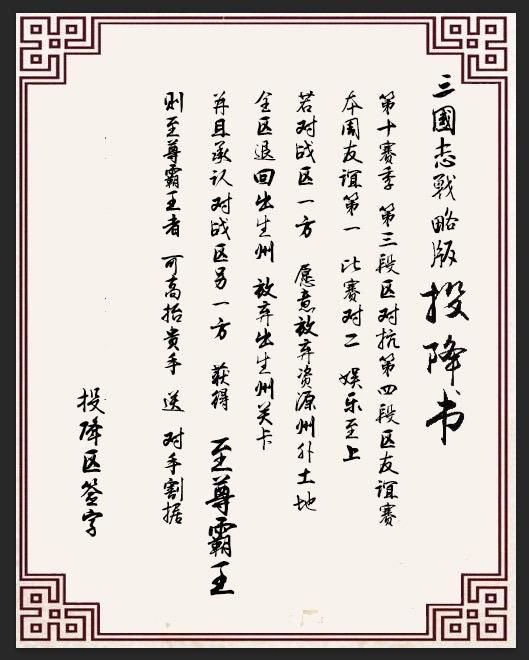 三國志戰略版 投降书
第十赛季 第三段区对抗第四段区友谊赛
本周友谊第一 比赛对二 娱乐至上
若对战区一方 愿意放弃资源州外土地
全区退回出生州 放弃出生州关卡
并且承认对战区另一方 获得 至尊霸王
则至尊霸王者 可高抬贵手 送 对手割据
投降区签字